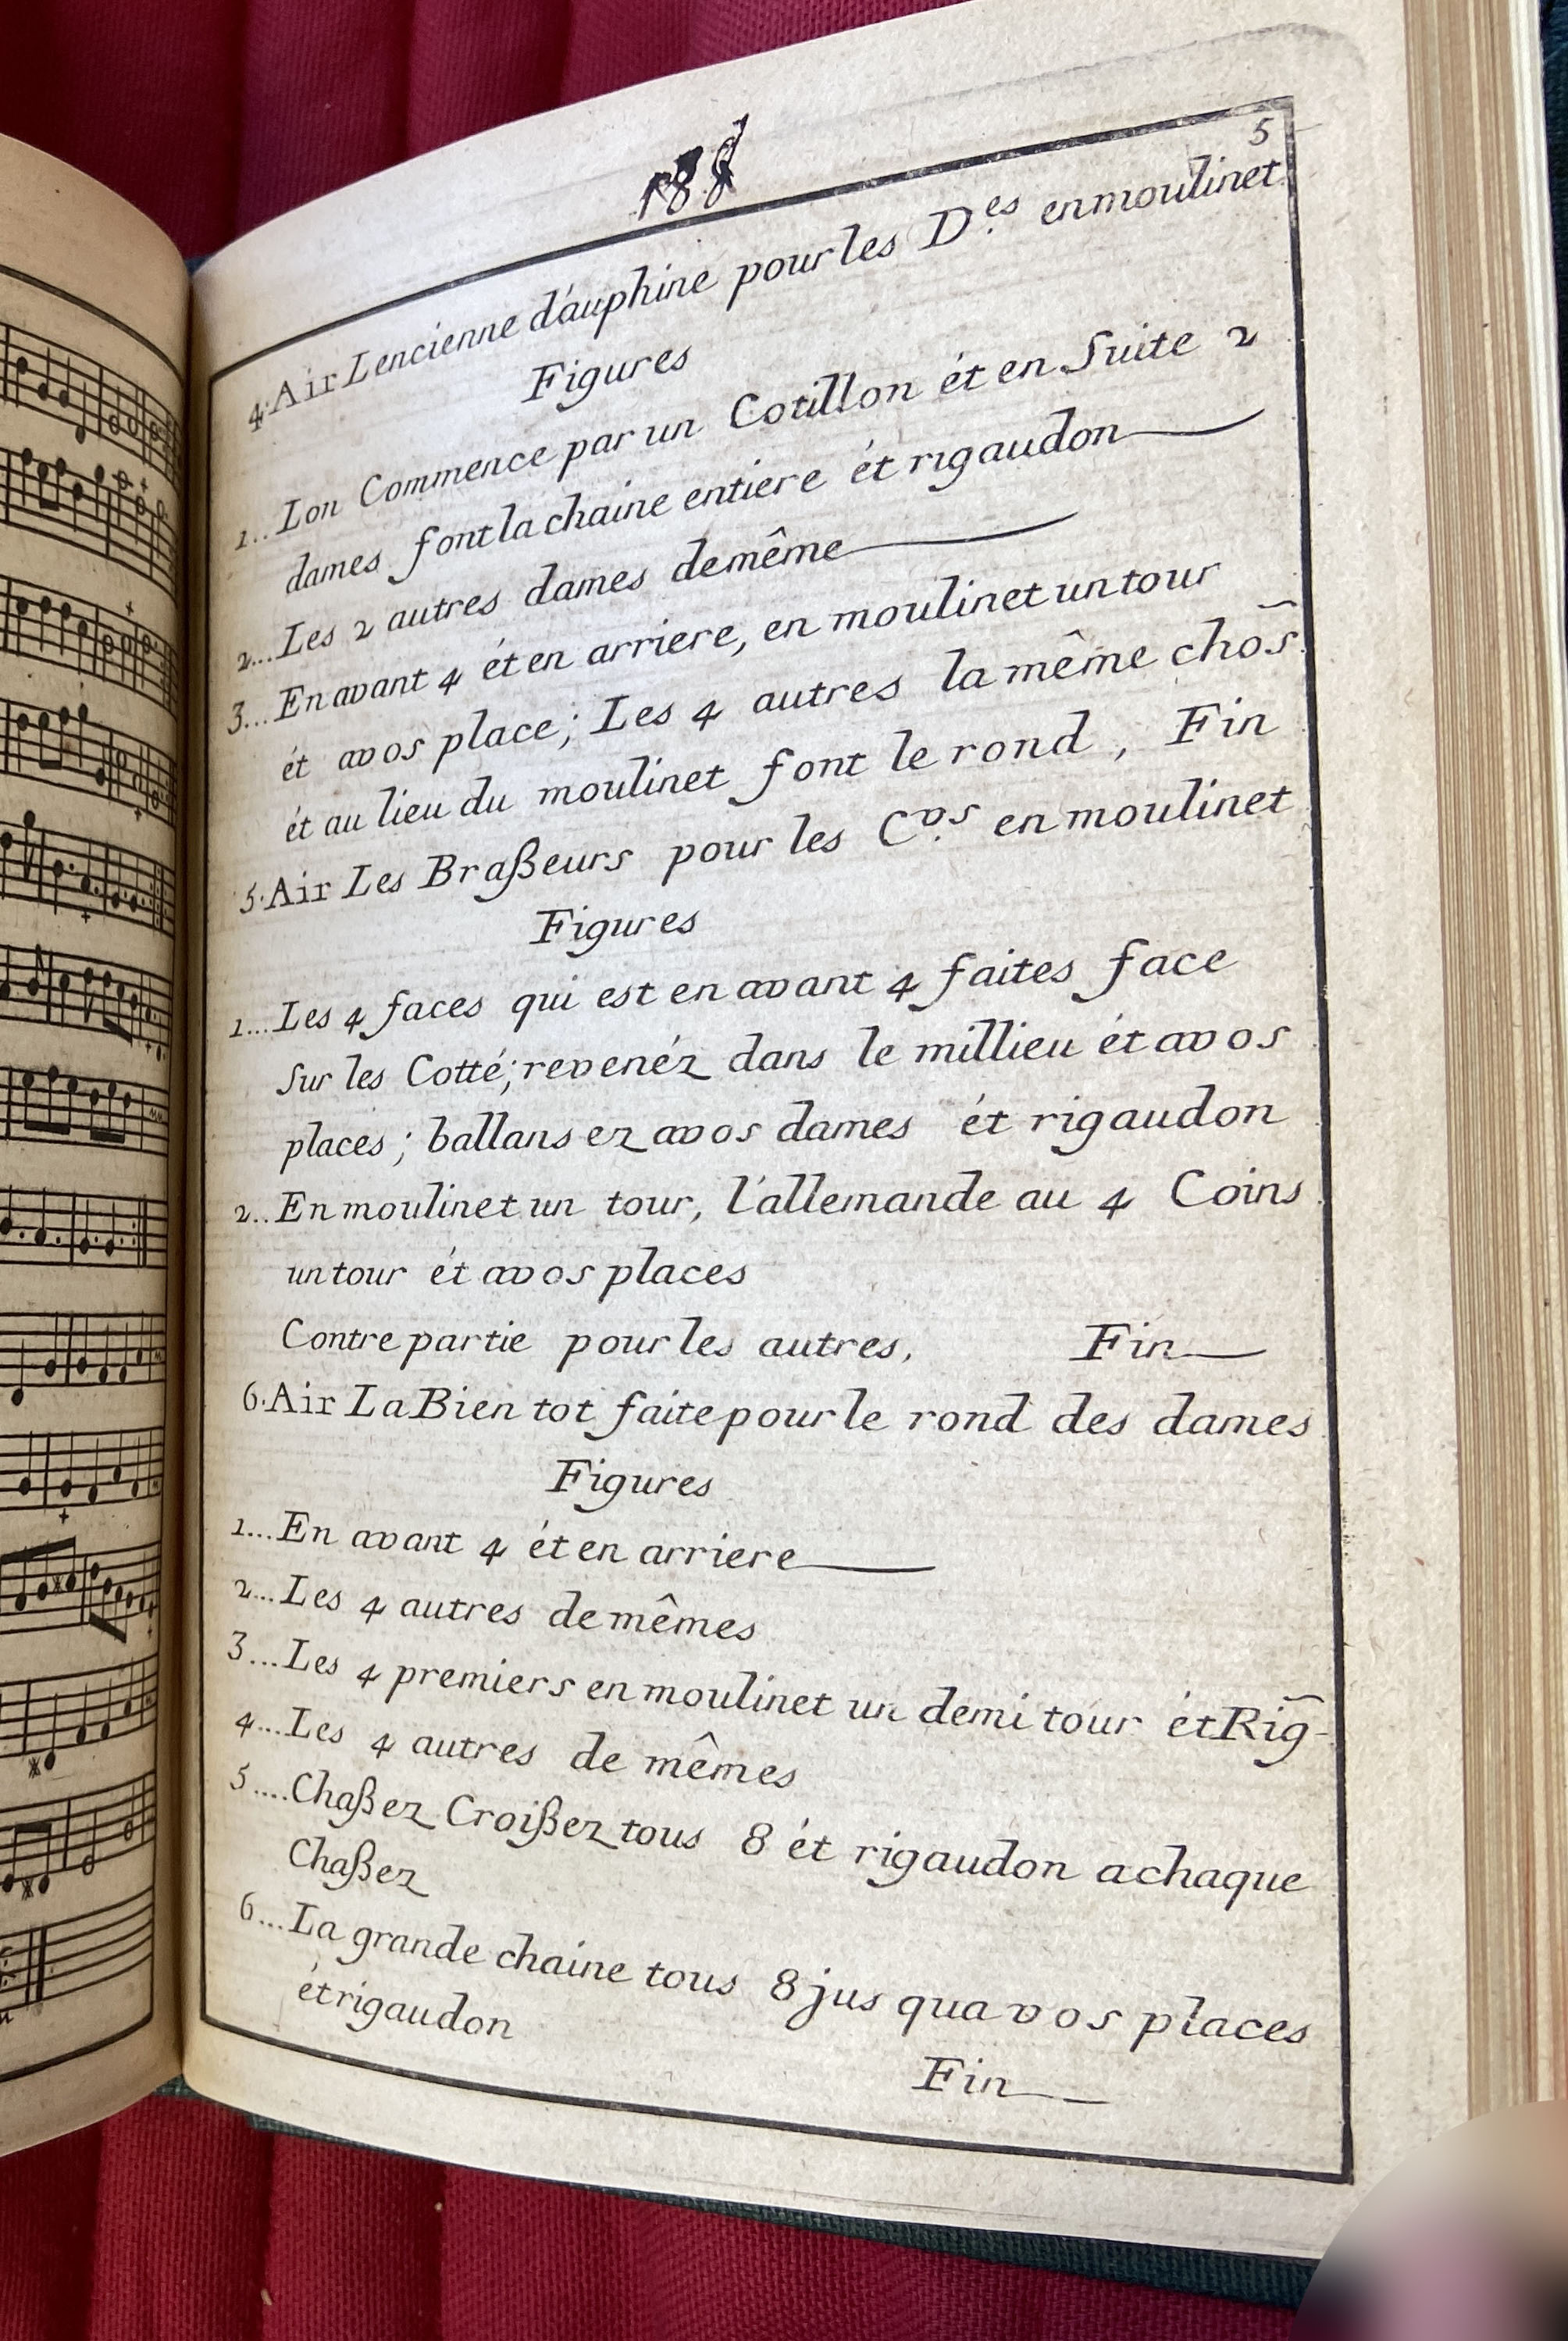 188
5
4. Air Lencienne d'auphine pour les D.es en moulinet
Figures
1... Lon Commence par un Cotillon ét en Suite 2
dames font la chaine entiere ét rigaudon
2... Les 2 autres dames de même
3... En avant 4 ét en arriere, en moulinet un tour
ét a vos place; Les 4 autres la même chos̄
ét au lieu du moulinet font le rond, Fin
5. Air Les Braßeurs pour les C.vs en moulinet
Figures
1... Les 4 faces qui est en avant 4 faites face
Sur les Cotté; revenéz dans le millieu ét a vos
places; ballansez a vos dames ét rigaudon
2.. En moulinet un tour, l'allemande au 4 Coins
un tour ét a vos places
Contre partie pour les autres, Fin
6. Air La Bien tot faite pour le rond des dames
Figures
1... En avant 4 ét en arriere
2... Les 4 autres de mêmes
3... Les 4 premiers en moulinet un demi tour ét Rig̅-
4... Les 4 autres de mêmes
5.... Chaßez Croißez tous 8 ét rigaudon a chaque
Chaßez
6... La grande chaine tous 8 jus qua vos places
ét rigaudon
Fin